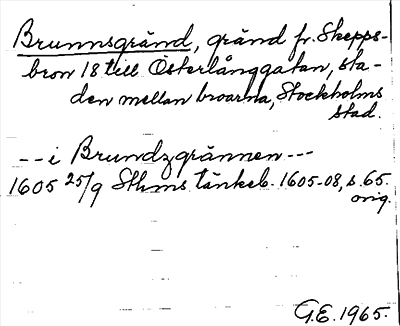 Brunnsgränd, gränd fr. Skepps-
bron 18 till Österlånggatan, sta-
den mellan broarna, Stockholms
stad.
--i Brundzgrännen---
1605 25/9 Sthms tänkeb. 1605-08, s. 65.
orig.
G.E. 1965.